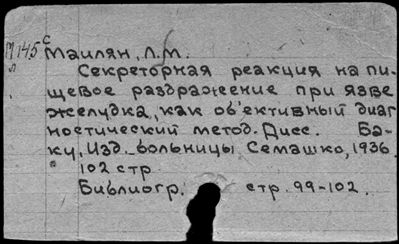 М145 с Маилян, Л.М.
л
Секреторная реакция на пи-
щевое раздражение при язве
желудка, как об'ективный диаг
ностический метод. Дисс. Ба-
ку, Изд. больницы Семашко, 1936.
102 стр
Библиогр. стр. 99-102.